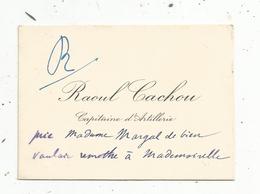 R
Raoul Cachou
Capitaine d'Artillerie
prie Madame Margal de bien
vouloir remettre à Mademoiselle